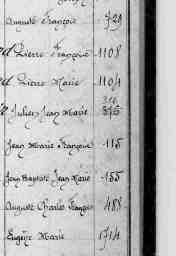 Auguste François 729
Pierre François 1108
Pierre Marie 1104
316
Julien Jean Marie 315
Jean Marie François 115
Jean Baptiste Jean Marie 155
Auguste Charles François 488
Eugène Marie 1714